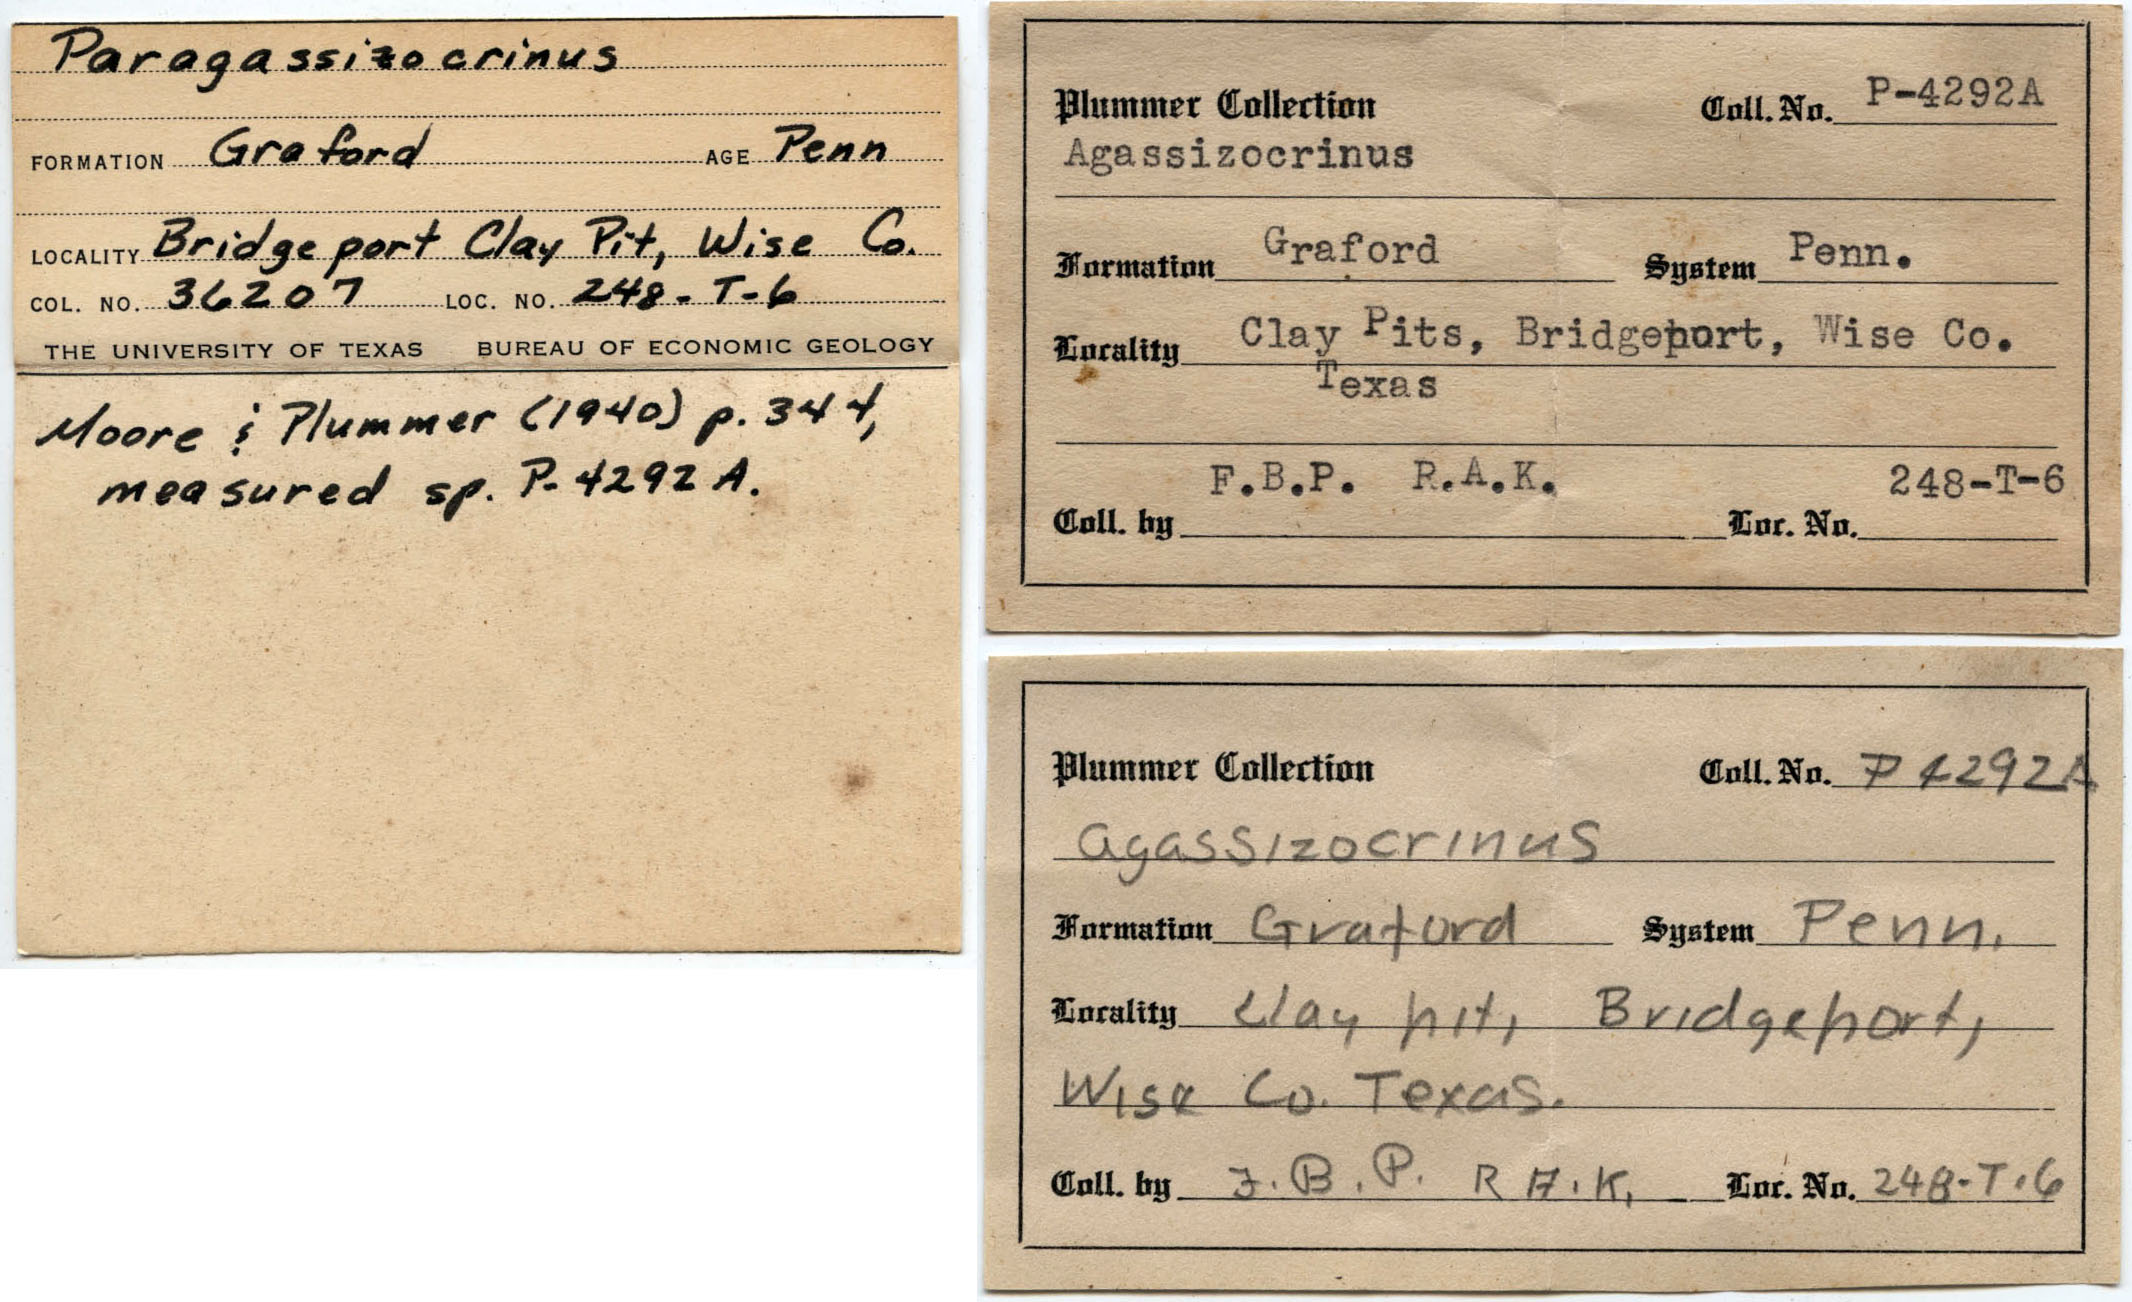 Paragassizocrinus
FORMATION Graford AGE Penn
LOCALITY Bridgeport Clay Pit, Wise Co.
COL. NO. 36207 LOC. NO. 248-T-6
THE UNIVERSITY OF TEXAS BUREAU OF ECONOMIC GEOLOGY
Moore & Plummer (1940) p. 344,
measured sp. P-4292A.
Plummer Collection Coll. No. P-4292A
Agassizocrinus
Formation Graford System Penn.
Locality Clay Pits, Bridgeport, Wise Co.
Texas
F.B.P. R.A.K. 248-T-6
Coll. by Loc. No.
Plummer Collection Coll. No. P 4292A
Agassizocrinus
Formation Graford System Penn.
Locality Clay pit, Bridgeport,
Wise Co. Texas.
Coll. by F.B.P. R A.K. Loc. No. 248-T-6